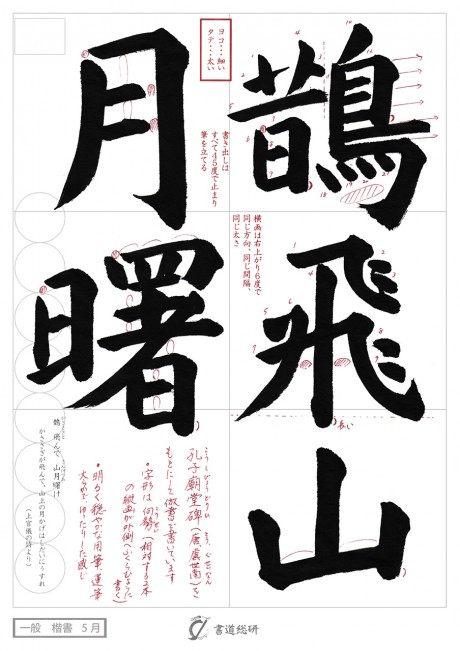 鵲飛山
月曙
ヨコ…細い
タテ…太い
書き出しは
すべて45度で止まり
筆を立てる
横画は右上がり6度で
同じ方向、同じ間隔、
同じ太さ
長い
孔子廟堂碑(唐・虞世南)を
もとにして倣書で書いています
・字形は向勢(相対する2本
の縦画が外側にふくらむように
書く)
・明るく穏やかな用筆、運筆
大きめでゆったりした感じ
鵲飛んで 山月曙け
かささぎが飛んで、山上の月かげはしだいにうすれ
(上官儀の詩より)
一般 楷書 5月
書道総研